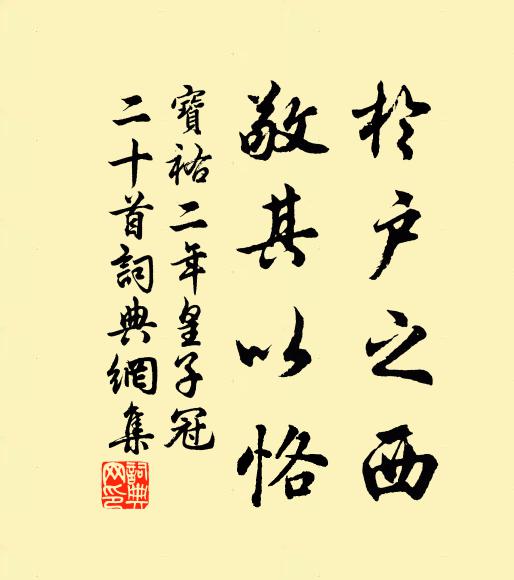 於户之西
敬其以恪
寶祐二年皇子冠
二十首詞典網集
詞典網印